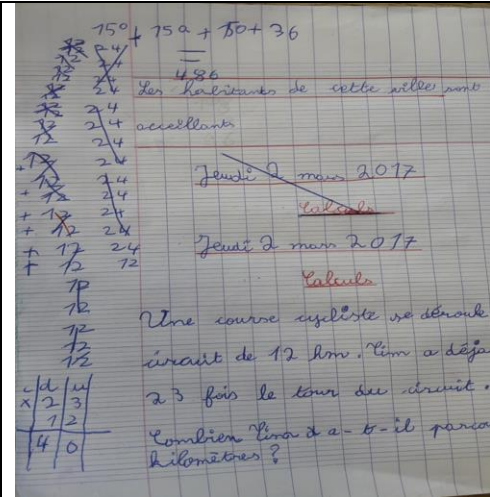 150 + 150 + 150 + 36
486
Les habitants de cette ville sont
accelllants
Jeudi 2 mars 2017
Calculs
Jeudi 2 mars 2017
Calculs
Une course cycliste se déroule
circuit de 12 km. Tim a déja
23 fois le tour du circuit.
Combien Tim a-t-il parco
kilomètres ?
12 24
12 24
12 24
12 24
12 24
12 24
12 24
+ 12 24
12 24
+ 12 24
+ 12 24
+ 12 24
+ 12 24
+ 12 12
12
12
12
12
12
c d u
x 2 3
1 2
4 0